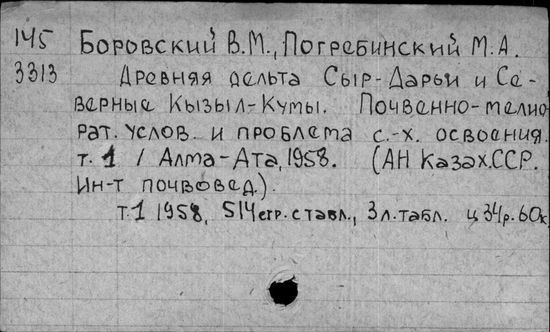 145 Боровский В.М., Погребинский М.А.
3313 Древняя дельта Сыр-Дарьи и Се-
верные Кызыл-Кумы. Почвенно-мелио-
рат. услов. и проблема с.-х. освоения.
т. 1 / Алма-Ата, 1958. (АН Казах.ССР.
Ин-т почвовед.).
т.1 1958, 514стр. с табл., 3 л. табл. ц 34р. 60к.